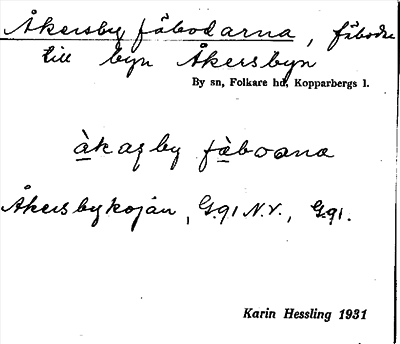 Åkersby fäbodarna, fäbodar
till byn Åkersbyn
By sn, Folkare hd, Kopparbergs l.
àkasby fàboana
Åkersbykojan, G.91 N.V., G.91.
Karin Hessling 1931